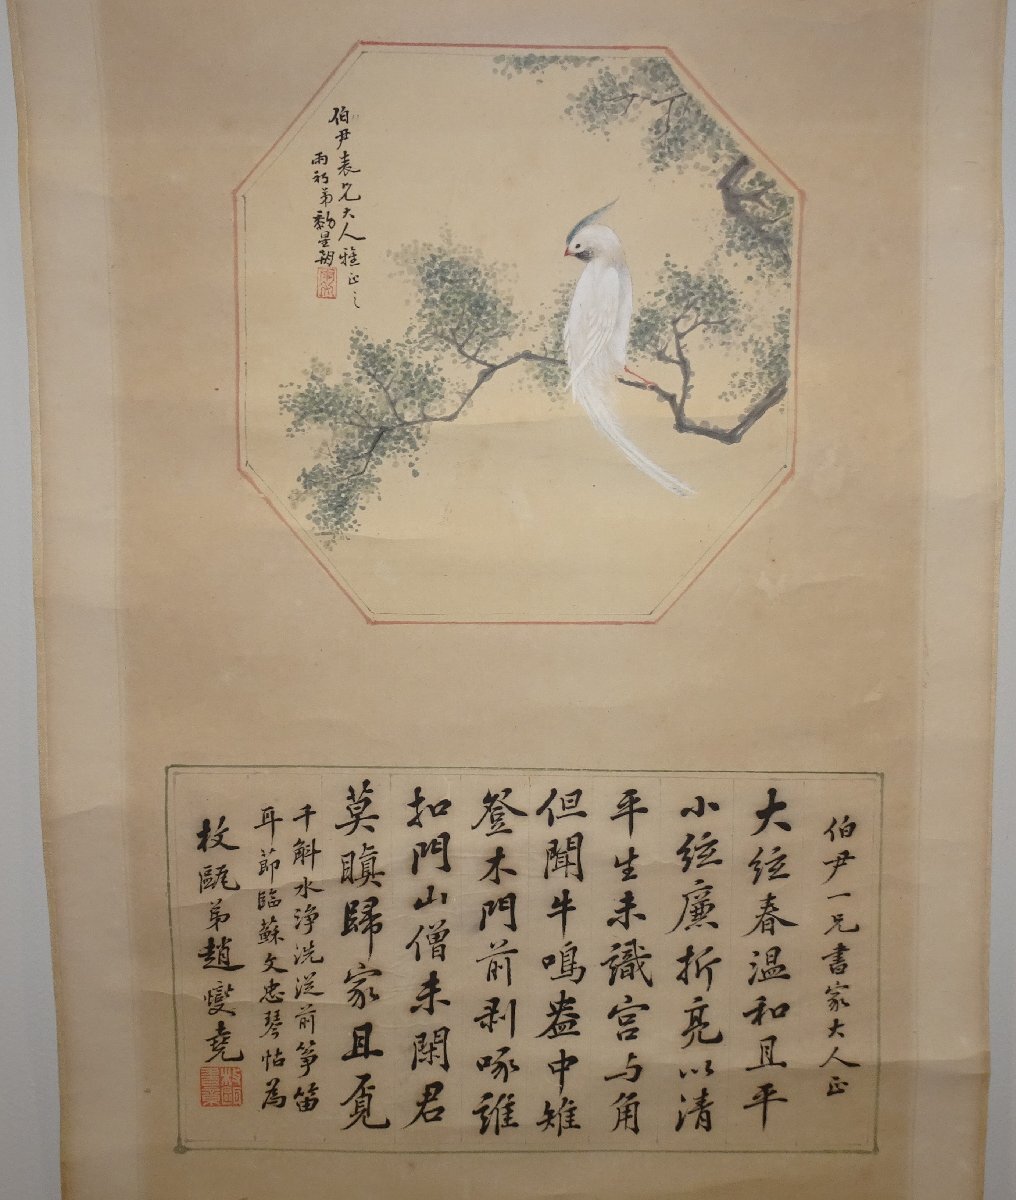 伯尹表兄大人雅正之
雨初弟
伯尹一兄書家大人正
大絃春温和且平
小絃廉折亮以清
平生未識宫与角
但聞牛鳴盎中雉
登木門前剥啄誰
扣門山僧未閑君
莫瞋歸家且覓
千斛水淨洗從前筝笛
耳節臨蘇文忠琴帖為
枚甌弟趙燮堯